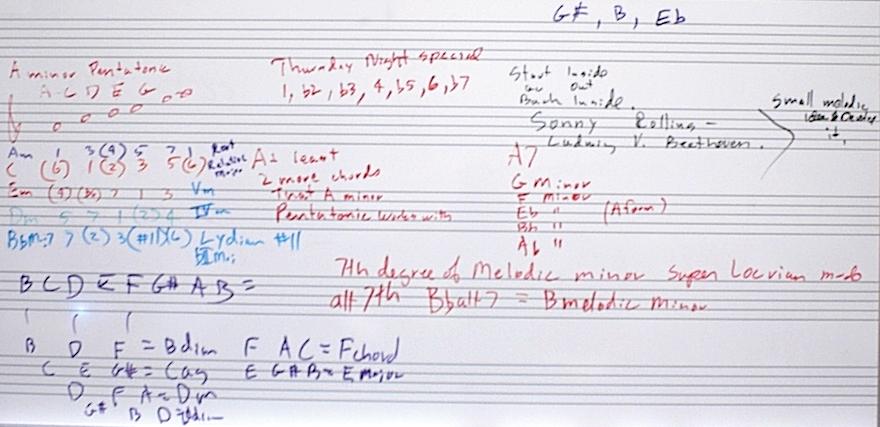 G#, B, Eb
A minor Pentatonic
A C D E G
Thursday Night special
1, b2, b3, 4, b5, 6, b7
Start Inside
Go Out
Back Inside.
Sonny Rollins –
Ludwig V. Beethoven.
small melodic
idea & Develop
it.
Am 1 3 (4) 5 7 1 Root
C (6) 1 (2) 3 5 (6) Relative
major
Em (4) 7 1 3 Vm
Dm 5 7 1 (2) 4 IVm
BbMaj7 7 (2) 3 (#11) (6) Lydian #11
At least
2 more chords
that A minor
Pentatonic works with
A7
G minor
F minor
Eb "
Bb "
Ab "
(A form)
B C D E F G# A B =
7th degree of Melodic minor Super Locrian
alt 7th Bbalt7 = B melodic minor
B D F = Bdim F A C = F chord
C E G# = Caug E G# B = E Major
D F A = Dm
G# B D =